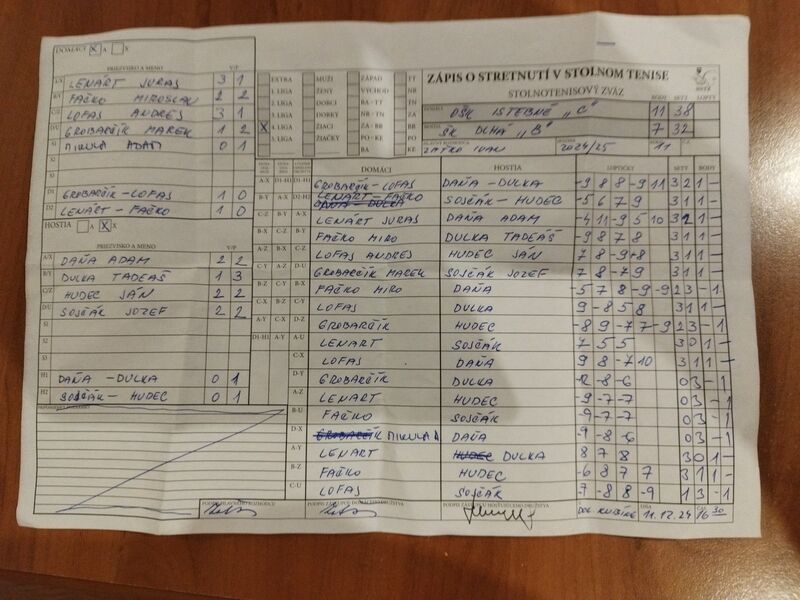 DOMÁCI X A X
PRIEZVISKO A MENO V/P
LENÁRT JURAS 3 1
FAČKO MIROSLAV 2 2
LOFAS ANDREJ 3 1
GROBARČÍK MAREK 1 2
MIKULA ADAM 0 1
D1 GROBARČÍK-LOFAS 1 0
D2 LENÁRT-FAČKO 1 0
HOSTIA A X X
PRIEZVISKO A MENO V/P
A/X DAŇA ADAM 2 2
B/Y DULKA TADEÁŠ 1 3
C/Z HUDEC JÁN 2 2
D/U SOJČÁK JOZEF 2 2
H1 DAŇA - DULKA 0 1
H2 SOJČÁK - HUDEC 0 1
EXTRA MUŽI ZÁPAD TT
1. LIGA ŽENY VÝCHOD NR
2. LIGA DORCI BA - TT TN
3. LIGA DORKY NR - TN ZA
X 4. LIGA ŽIACI ZA - BB BB
5. LIGA ŽIAČKY PO - KE PO
BA KE
ZÁPIS O STRETNUTÍ V STOLNOM TENISE
STOLNOTENISOVÝ ZVÄZ
BODY SETY LOPTY
OŠK ISTEBNÉ „C" 11 38
ŠK DLHÁ „B" 7 32
IVAN 2024/25 11
DOMÁCI HOSTIA LOPTIČKY SETY BODY
GROBARČÍK-LOFAS DAŇA-DULKA -9 8 8 -9 11 3 2 1 -
LENART-FAČKO SOJČÁK-HUDEC -5 6 7 9 3 1 1 -
LENÁRT JURAS DAŇA ADAM -4 11 -9 5 10 3 2 1 -
FAČKO MIRO DULKA TADEÁŠ -9 8 7 8 3 1 1 -
LOFAS ANDREJ HUDEC JÁN 7 8 -9 8 3 1 1 -
GROBARČÍK MAREK SOJČÁK JOZEF 7 8 -7 9 3 1 1 -
FAČKO MIRO DAŇA -5 7 8 -9 -9 2 3 - 1
LOFAS DULKA 9 -8 5 8 3 1 1 -
GROBARČÍK HUDEC -8 9 -7 7 -9 2 3 - 1
LENART SOJČÁK 7 5 5 3 0 1 -
LOFAS DAŇA 9 8 -7 10 3 1 1 -
GROBARČÍK DULKA -12 -8 -6 0 3 - 1
LENART HUDEC -9 -7 -7 0 3 - 1
FAČKO SOJČÁK -9 -7 -7 0 3 - 1
MIKULA A DAŇA -9 -8 -6 0 3 - 1
LENART DULKA 8 7 8 3 0 1 -
FAČKO HUDEC -6 8 7 7 3 1 1 -
LOFAS SOJČÁK -8 8 -9 1 3 - 1
PODPIS HLAVNÉHO ROZHODCU
PODPIS ZÁSTUPCU DOMÁCEHO DRUŽSTVA
PODPIS ZÁSTUPCU HOSŤUJÚCEHO DRUŽSTVA
DOL. KUBÍN 11.12.24 16 30